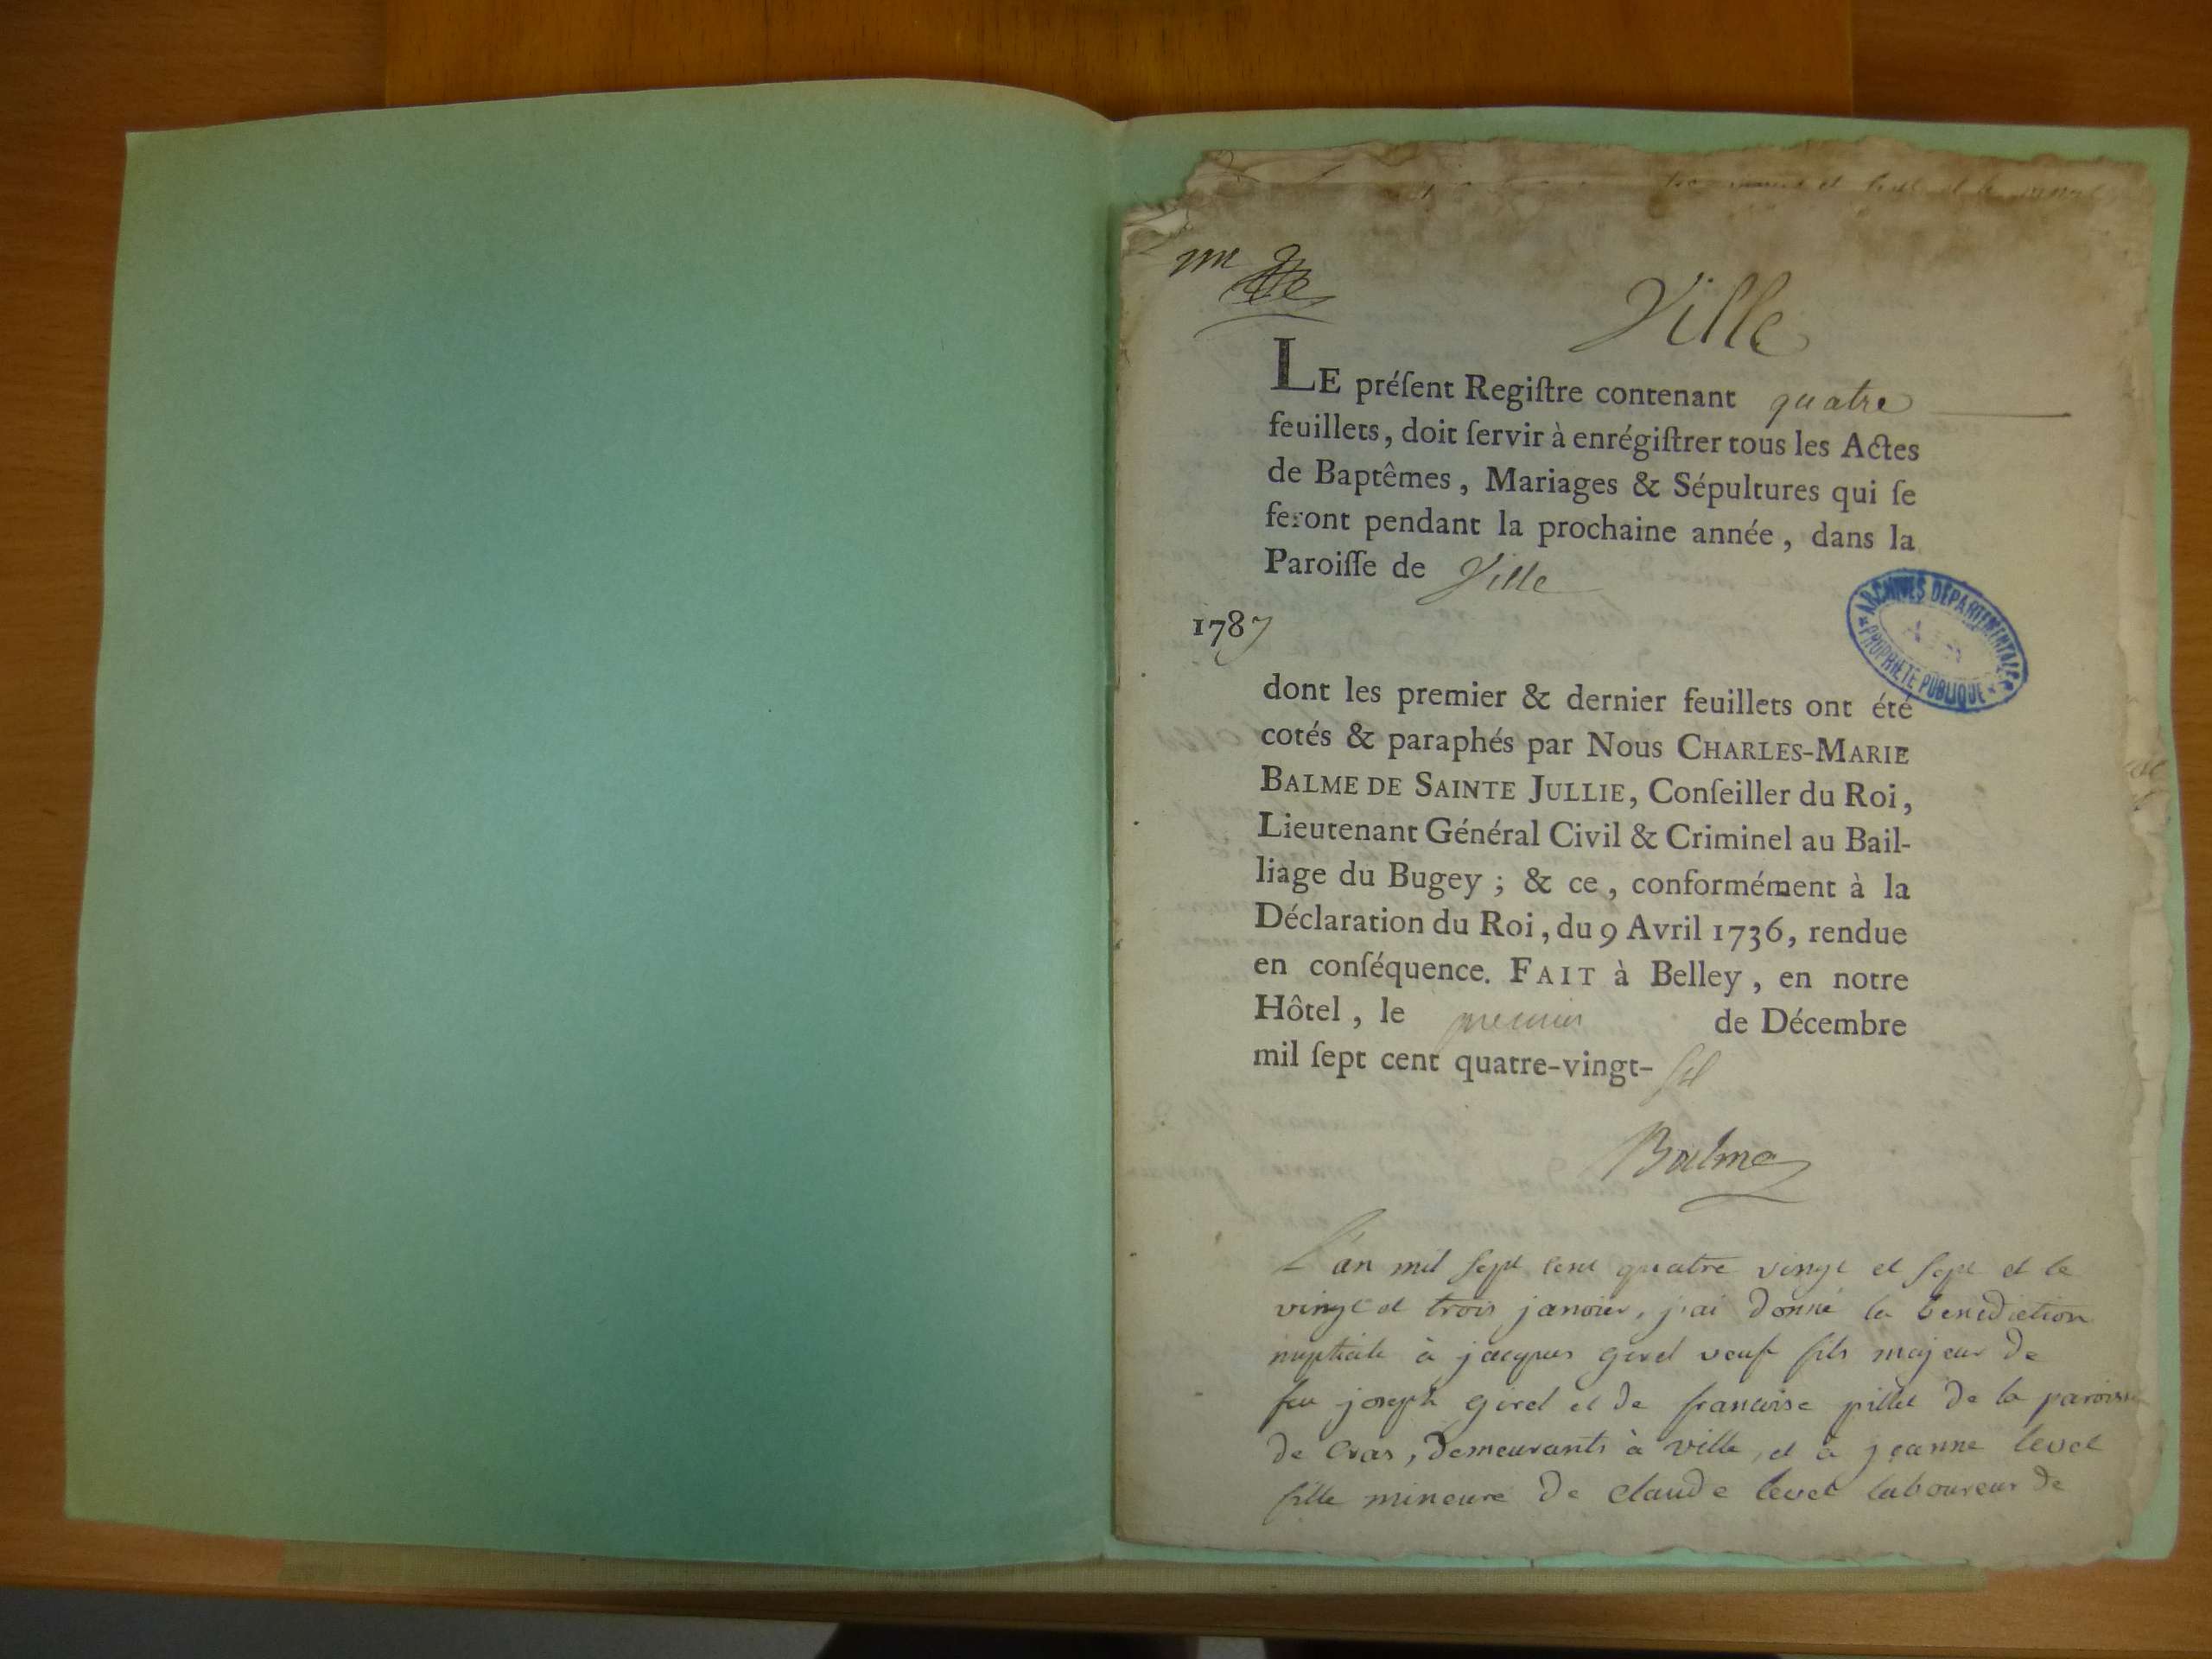 Ville
LE préſent Regiſtre contenant quatre
feuillets, doit ſervir à enrégiſtrer tous les Actes
de Baptêmes, Mariages & Sépultures qui ſe
feront pendant la prochaine année, dans la
Paroiſſe de Ville
1787
ARCHIVES DÉPARTEMENTALES
PROPRIÉTÉ PUBLIQUE
dont les premier & dernier feuillets ont été
cotés & paraphés par Nous CHARLES-MARIE
BALME DE SAINTE JULLIE, Conſeiller du Roi,
Lieutenant Général Civil & Criminel au Bail-
liage du Bugey ; & ce, conformément à la
Déclaration du Roi, du 9 Avril 1736, rendue
en conſéquence. FAIT à Belley, en notre
Hôtel, le premier de Décembre
mil ſept cent quatre-vingt-
Balme
L'an mil sept cent quatre vingt et sept et le
vingt et trois janvier, j'ai donné la benediction
nuptiale à jacques girel veuf fils majeur de
feu joseph girel et de francoise pillet de la paroisse
de Cras, demeurants à ville, et à jeanne levet
fille mineure de claude levet laboureur de